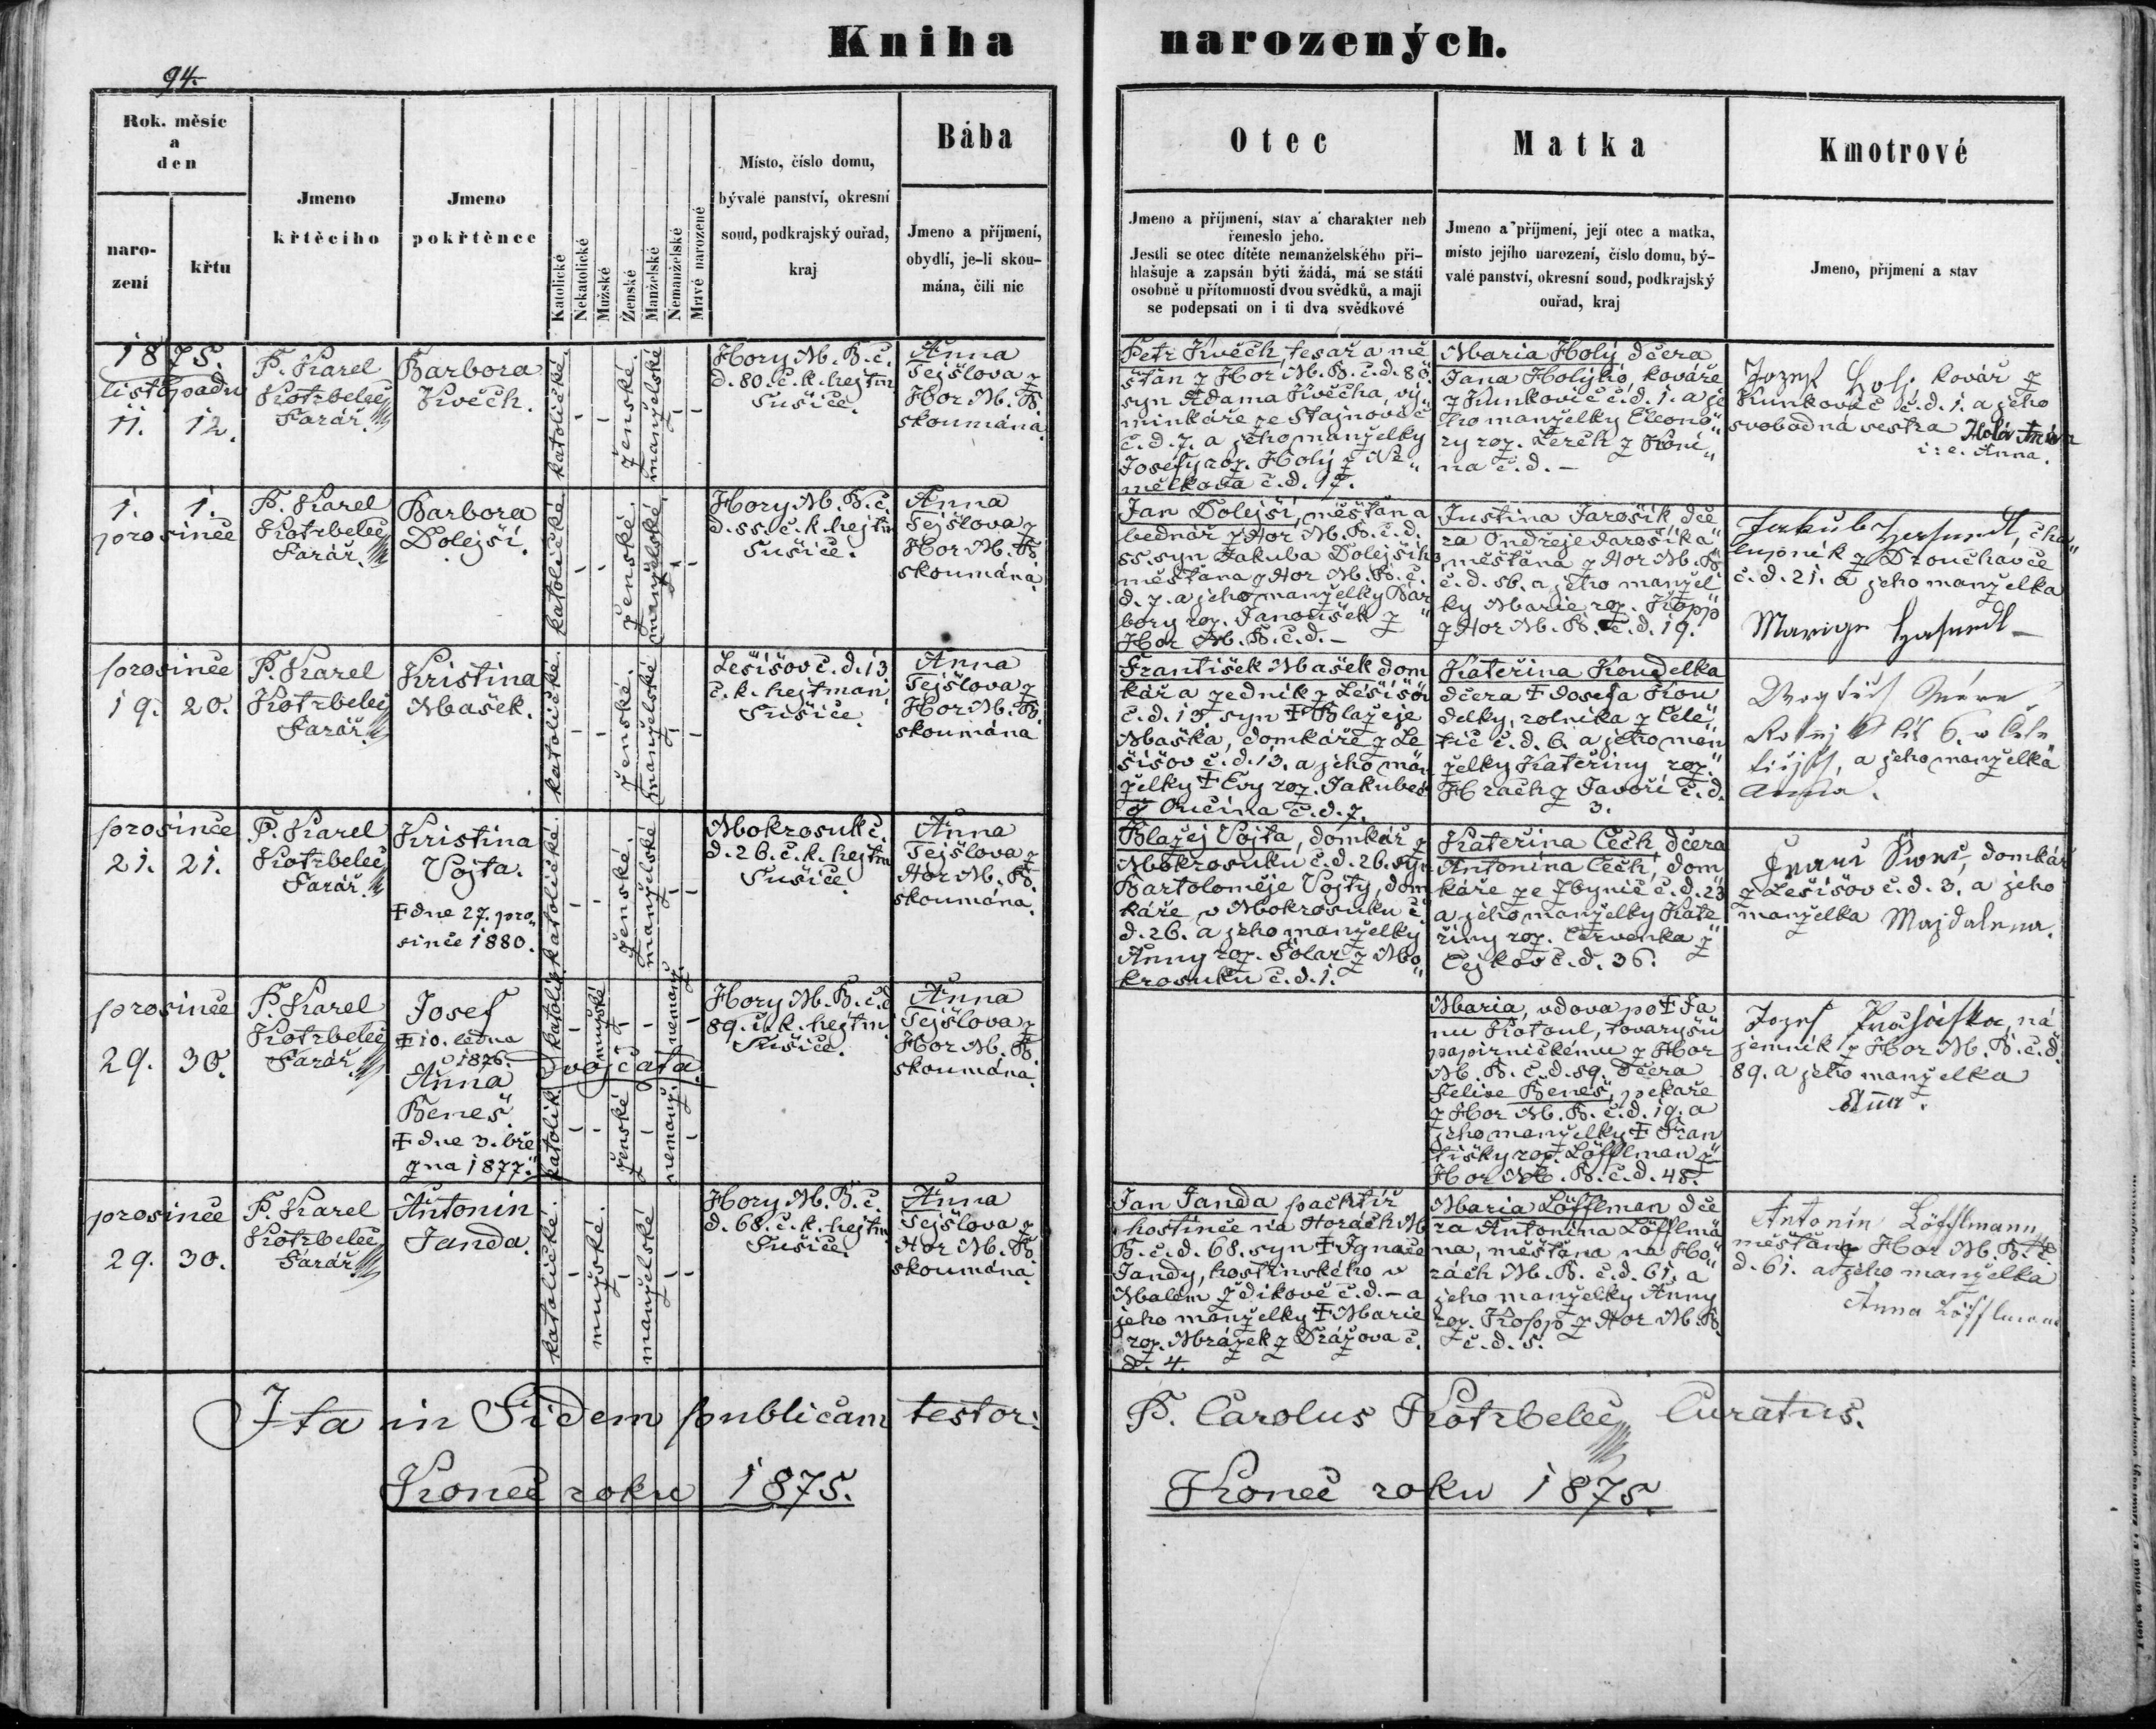 Kniha narozených.
94.
Rok. měsíc
a
den
naro-
zení
křtu
Jmeno
křtěcího
Jmeno
pokřtěnce
Katolické
Nekatolické
Mužské
Ženské
Manželské
Nemanželské
Mrtvě narozené
Místo, číslo domu,
bývalé panství, okresní
soud, podkrajský ouřad,
kraj
Bába
Jmeno a příjmení,
obydlí, je-li skou-
mána, čili nic
Otec
Jmeno a příjmení, stav a charakter neb
řemeslo jeho.
Jestli se otec dítěte nemanželského při-
hlašuje a zapsán býti žádá, má se státi
osobně u přítomnosti dvou svědků, a mají
se podepsati on i ti dva svědkové
Matka
Jmeno a příjmení, její otec a matka,
místo jejího narození, číslo domu, bý-
valé panství, okresní soud, podkrajský
ouřad, kraj
Kmotrové
Jmeno, příjmení a stav
1875.
listopadu
11. 12.
P. Karel
Kotrbelec
Farář.
Barbora
Kvěch.
katolické.
ženské.
manželské
Hory M. B. č.
d. 80. c. k. hejtm
Sušice.
Anna
Tejšlova z
Hor M. B.
skoumána.
Petr Kvěch, tesař a mě
šťan z Hor M. B. č. d. 80.
syn Adama Kvěcha, vý"
minkáře ze Stajnovic
č. d. 7. a jeho manželky
Josefy roz. Holý z Ne"
mělkova č. d. 17.
Maria Holý dcera
Jana Holýho, kováře
z Kunkovic č. d. 1. a je
ho manželky Eleono"
ry roz. Lerch z Koní"
na č. d. –
Jozef Holý kovář z
Kunkovic č. d. 1. a jeho
svobodná sestra Holá
i: e. Anna.
1. 1.
prosince
P. Karel
Kotrbelec
Farář.
Barbora
Dolejší.
katolické
ženské.
manželské
Hory M. B. č.
d. 55. c. k. hejtm
Sušice.
Anna
Tejšlova z
Hor M. B.
skoumána.
Jan Dolejší, měšťan a
bednář z Hor M. B. č. d.
55. syn Jakuba Dolejšího
měšťana z Hor M. B. č.
d. 7. a jeho manželky Bar
bory roz. Janoušek z "
Hor M. B. č. d. –
Justina Jarošík, dce
ra Ondřeje Jarošíka"
měšťana z Hor M. B.
č. d. 56. a jeho manžel
ky Marie roz. Kopp
z Hor M. B. č. d. 19.
Jakub cha"
lupník z Drouhavče
č. d. 21. a jeho manželka
prosince
19. 20.
P. Karel
Kotrbelec
Farář.
Kristina
Mašek.
katolické.
ženské.
manželské
Lešišov č. d. 13.
c. k. hejtman
Sušice.
Anna
Tejšlova z
Hor M. B.
skoumána
František Mašek dom
kář a zedník z Lešišov
č. d. 13. syn ‡ Blažeje
Maška, domkáře z Le
šišov č. d. 13. a jeho man
želky ‡ Evy roz. Jakubec
z Onćina č. d. 7.
Kateřina Koudelka
dcera ‡ Josefa Kou
delky, rolníka z Cele"
tic č. d. 6. a jeho man
želky Kateřiny roz."
Hrach z Javoří č. d.
3.
a jeho manželka
Anna.
prosince
21. 21.
P. Karel
Kotrbelec
Farář.
Kristina
Vojta.
‡ dne 27. pro"
since 1880.
katolické.
ženské.
manželské
Mokrosuk č.
d. 26. c. k. hejtm
Sušice.
Anna
Tejšlova z
Hor M. B.
skoumána.
Blažej Vojta, domkář z
Mokrosuku č. d. 26. syn
Bartoloměje Vojty, dom
káře v Mokrosuku č.
d. 26. a jeho manželky
Anny roz. Šolar z Mo"
krosuku č. d. 1.
Kateřina Čech, dcera
Antonína Čech, dom
káře ze Zbynic č. d. 23
a jeho manželky Kate
řiny roz. Červenka z "
Čejkov č. d. 36.
domkář
z Lešišov č. d. 3. a jeho
manželka Majdalena.
prosince
29. 30.
P. Karel
Kotrbelec
Farář.
Josef
‡ 10. ledna
1876.
Anna
Beneš.
‡ dne 3. bře
zna 1877.
katolik.
mužské
nemanž.
Dvojčata.
katolik.
ženské
nemanž.
Hory M. B. č. d
89. c. k. hejtm
Sušice.
Anna
Tejšlova z
Hor M. B.
skoumána.
Maria, vdova po ‡ Ja
nu Kotoul, tovaryšů
papírnickému z Hor
M. B. č. d. 59. dcera
Felixe Beneš, pekaře
z Hor M. B. č. d. 19. a
jeho manželky ‡ Fran
tišky roz. Löfflman z
Hor M. B. č. d. 48.
Jozef ná
jemník z Hor M. B. č. d.
89. a jeho manželka
Anna.
prosince
29. 30.
P. Karel
Kotrbelec
Farář
Antonín
Janda.
katolické.
mužské.
manželské
Hory M. B. č.
d. 68. c. k. hejtm
Sušice.
Anna
Tejšlova z
Hor M. B.
skoumána.
Jan Janda pachtíř
hostince na Horách M.
B. č. d. 68. syn ‡ Ignáce
Jandy, hostinského v
Malém Zdikově č. d. – a
jeho manželky ‡ Marie
roz. Mrázek z Drážova č.
d. 4.
Maria Löfflman dce
ra Antonína Löfflma
na, měšťana na Ho"
rách M. B. č. d. 61. a
jeho manželky Anny
roz. Kopp z Hor M. B.
č. d. 5.
Antonín Löfflmann
měšťan z Hor M. B. č.
d. 61. a jeho manželka
Anna Löfflmann
Ita in Fidem publicam testor: P. Carolus Kotrbelec Curatus.
Konec roku 1875. Konec roku 1875.